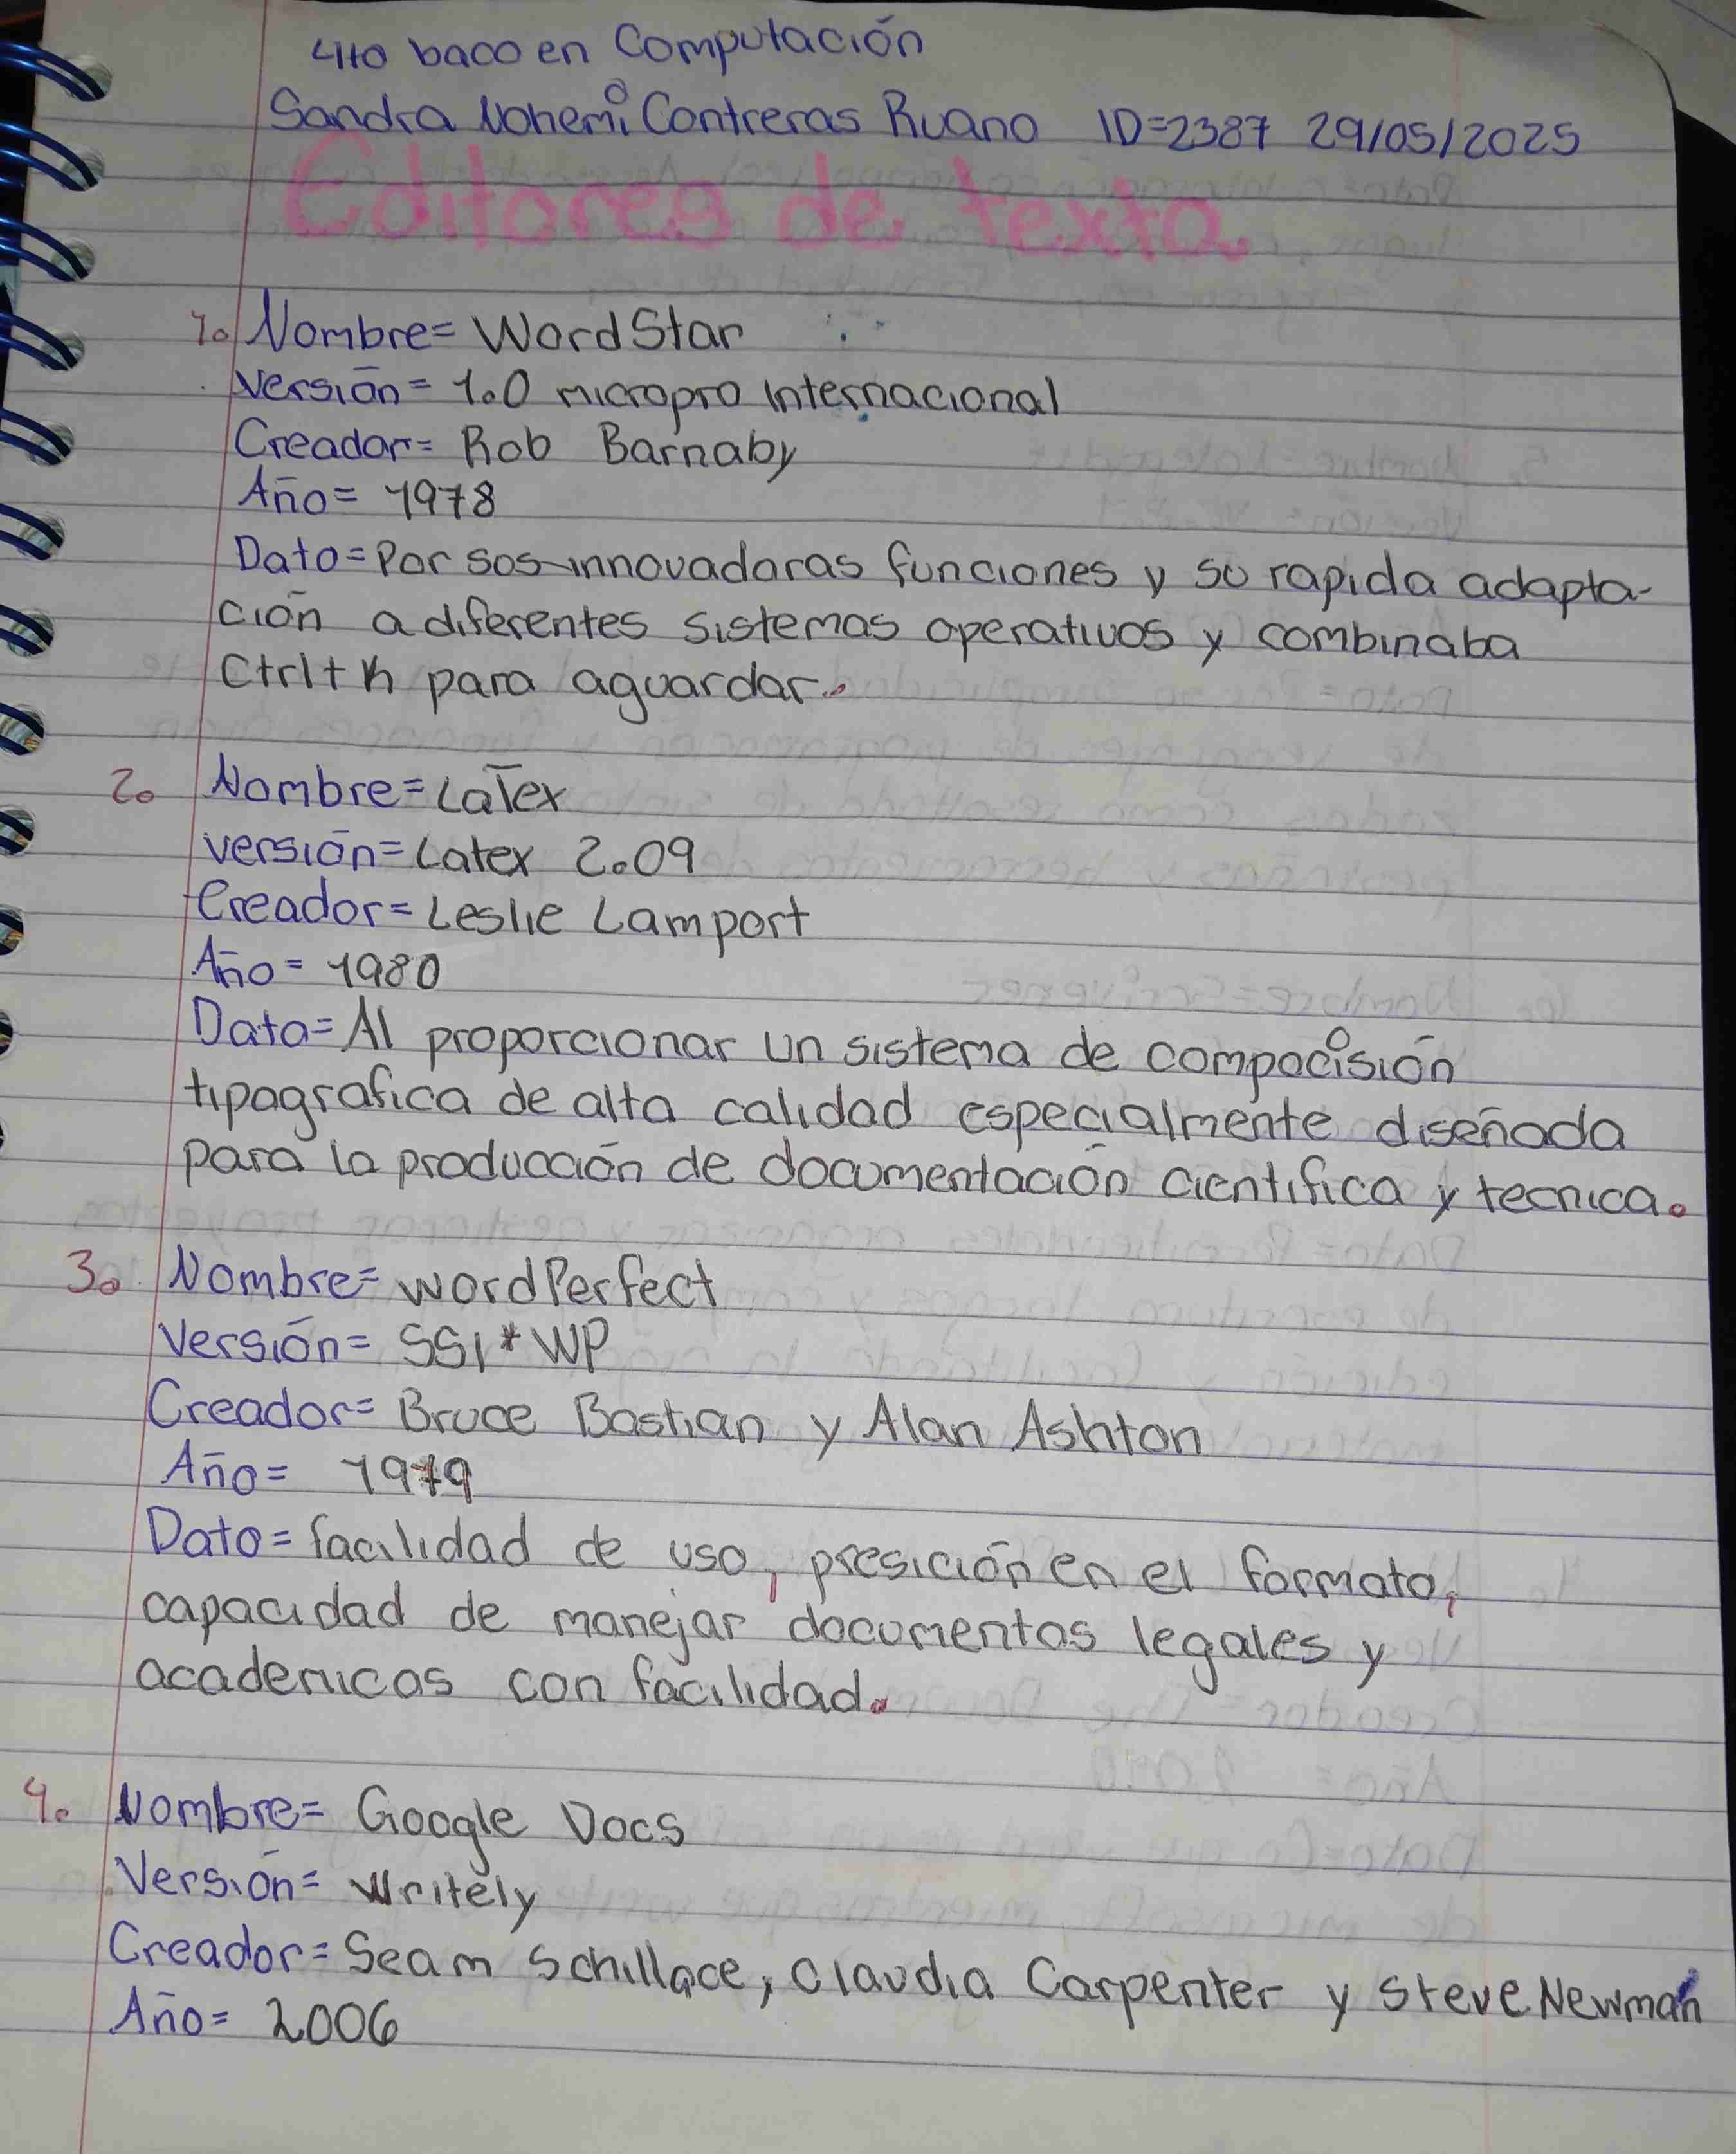 4to baco en Computación
Sandra Nohemi Contreras Ruano ID=2387 29/05/2025
Editores de texto
1. Nombre= WordStar
Versión= 1.0 micropro internacional
Creador= Rob Barnaby
Año= 1978
Dato= Por sos innovadoras funciones y su rapida adapta-
ción a diferentes sistemas operativos y combinaba
Ctrl+k para aguardar.
2. Nombre= LaTex
versión= Latex 2.09
Creador= Leslie Lamport
Año= 1980
Dato= Al proporcionar un sistema de compocisión
tipografica de alta calidad especialmente diseñada
para la producción de documentación cientifica y tecnica.
3. Nombre= wordPerfect
Versión= SSI*WP
Creador= Bruce Bastian y Alan Ashton
Año= 1979
Dato= facilidad de uso, presición en el formato,
capacidad de manejar documentos legales y
academicos con facilidad.
4. Nombre= Google Docs
Versión= Writely
Creador= Seam Schillace, Claudia Carpenter y Steve Newman
Año= 2006